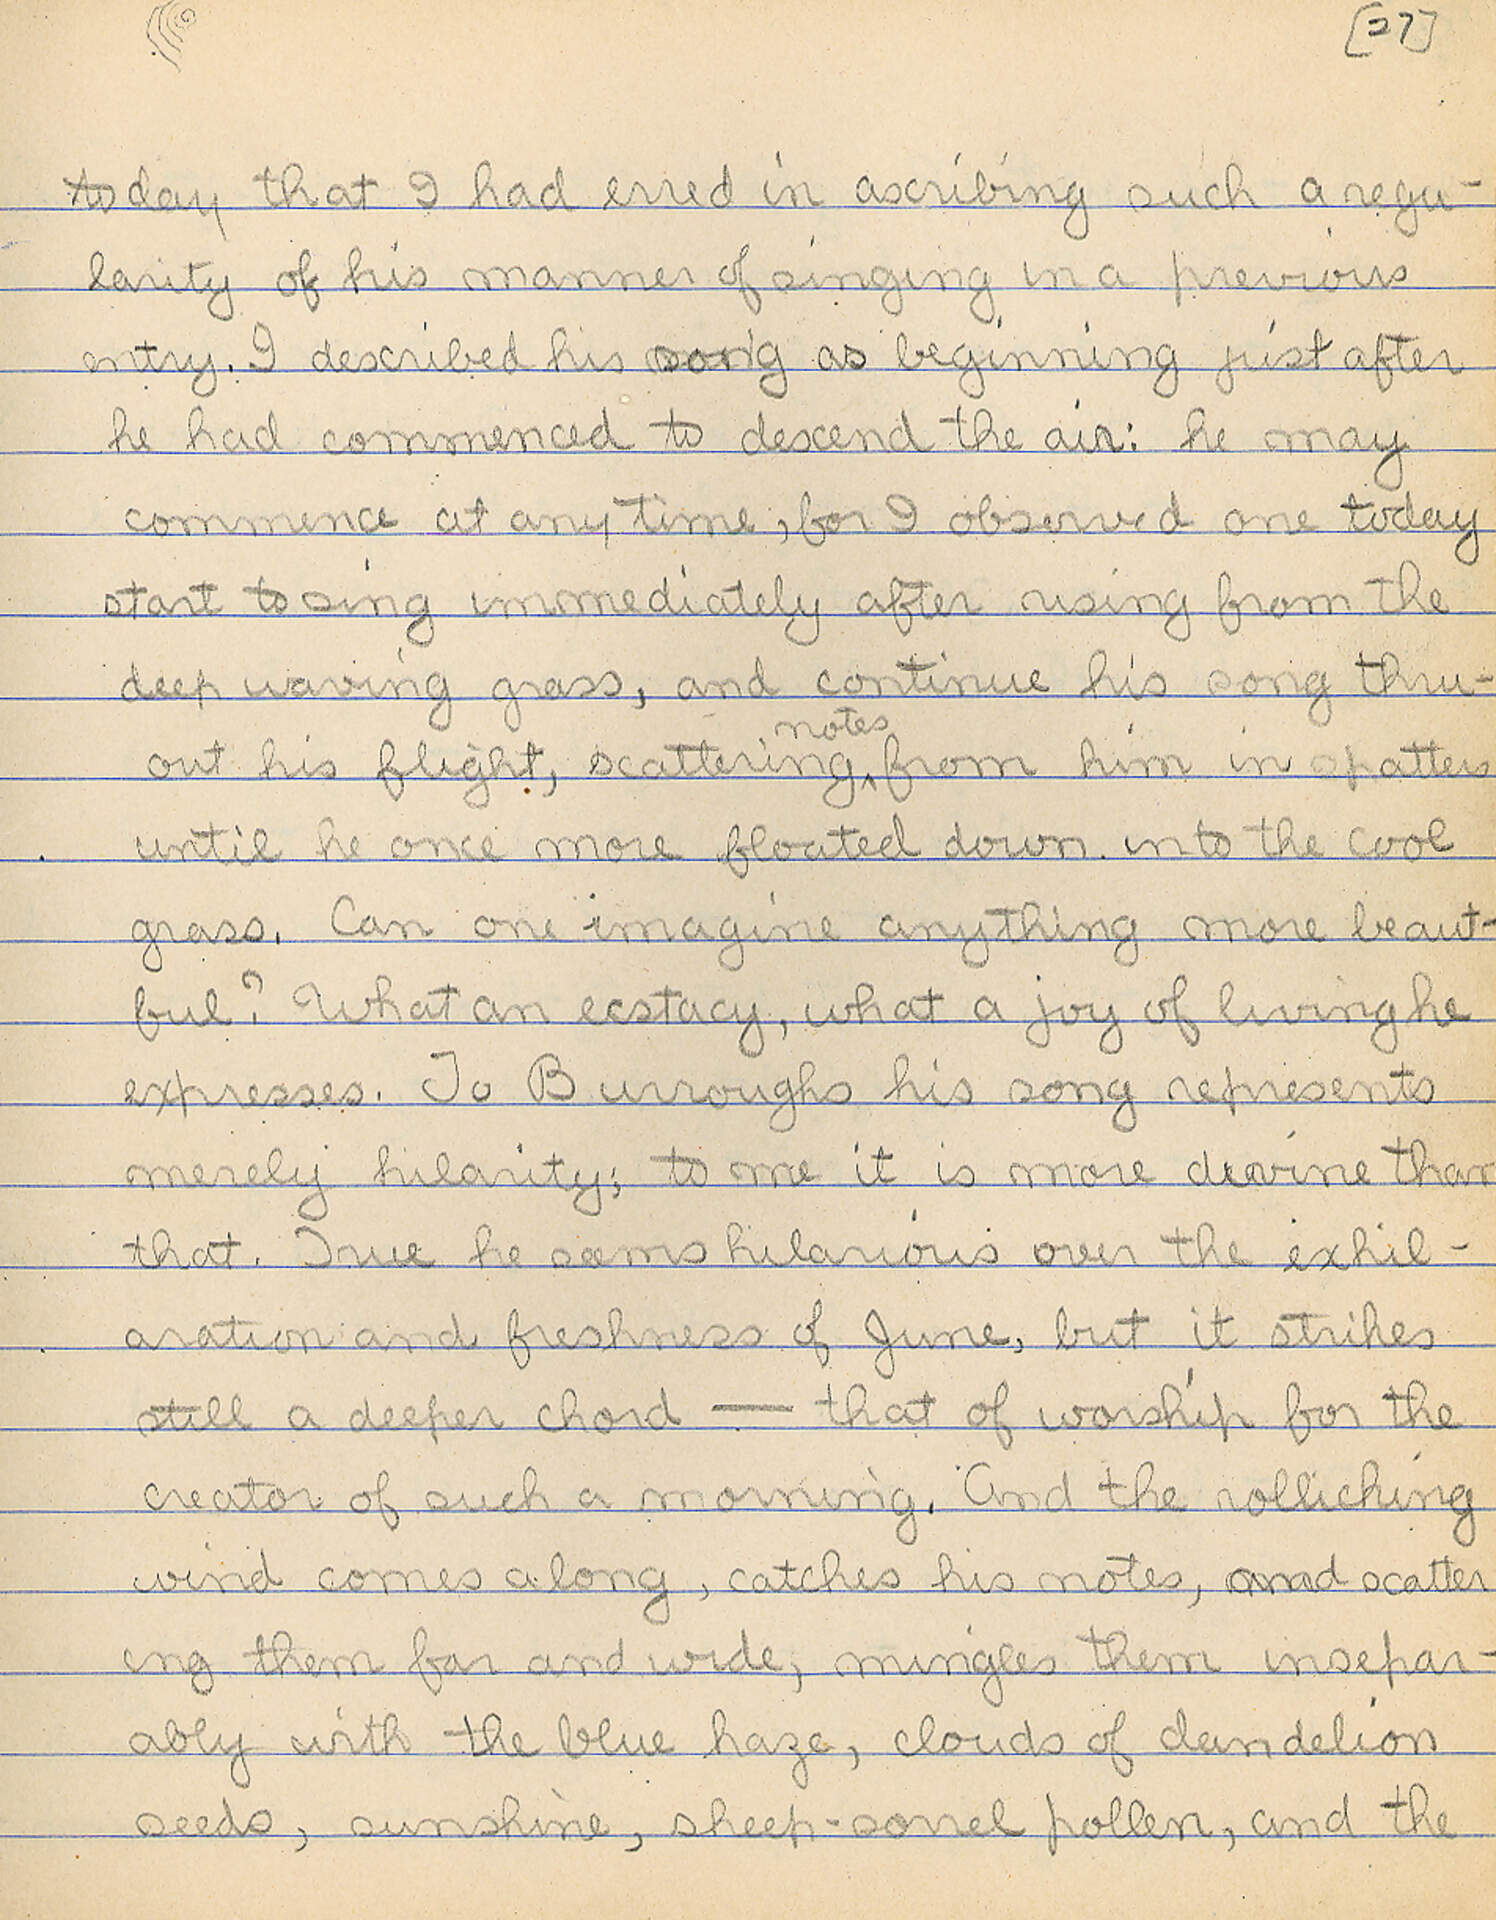 [27]
today that I had erred in ascribing such a regu-
larity of his manner of singing in a previous
entry. I described his song as beginning just after
he had commenced to descend the air: he may
commence at any time, for I observed one today
start to sing immediately after rising from the
deep waving grass, and continue his song thru-
out his flight, scattering ^notes from him in spatters
until he once more floated down into the cool
grass. Can one imagine anything more beaut-
ful? What an ecstacy, what a joy of living he
expresses. To Burroughs his song represents
merely hilarity; to me it is more devine than
that. True he seems hilarious over the exhil-
aration and freshness of June, but it strikes
still a deeper chord — that of worship for the
creator of such a morning. And the rolliching
wind comes along, catches his notes, and scatter
ing them far and wide, mingles them insepar-
ably with the blue haze, clouds of dandelion
seeds, sunshine, sheep-sorrel pollen, and the